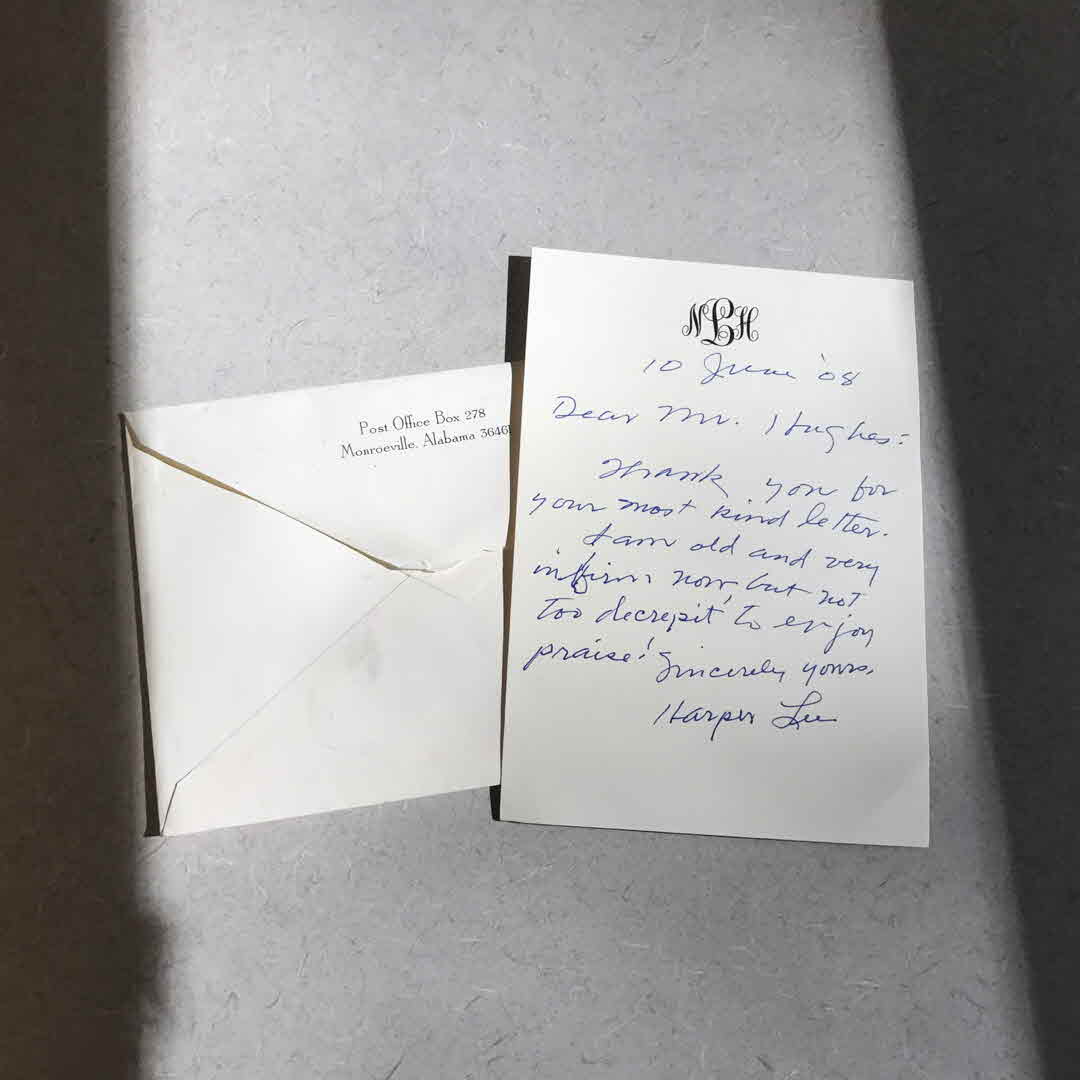 Post Office Box 278
Monroeville, Alabama 36461
NLH
10 June '08
Dear Mr. Hughes:
Thank you for
your most kind letter.
I am old and very
infirm now, but not
too decrepit to enjoy
praise! Sincerely yours,
Harper Lee